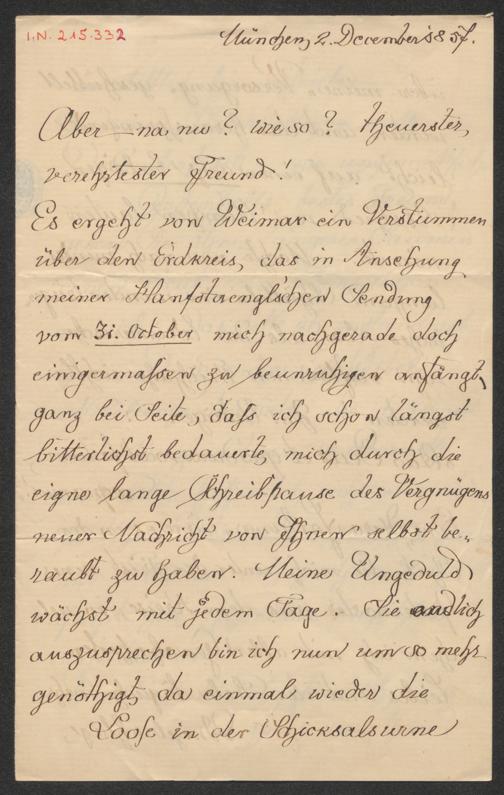 I.N. 215.332
München, 2. December 1857.
Aber – na nu? wie so? theuerster,
verehrtester Freund!
Es ergeht von Weimar ein Verstummen
über den Erdkreis, das in Ansehung
meiner Hanfstaenglschen Sendung
vom 31. October mich nachgerade doch
einigermassen zu beunruhigen anfängt,
ganz bei Seite, daß ich schon längst
bitterlichst bedauerte, mich durch die
eigne lange Schreibpause des Vergnügens
neuer Nachricht von Ihnen selbst be-
raubt zu haben. Meine Ungeduld
wächst mit jedem Tage. Sie endlich
auszusprechen bin ich nun um so mehr
genöthigt, da einmal wieder die
Loose in der Schicksalsurne